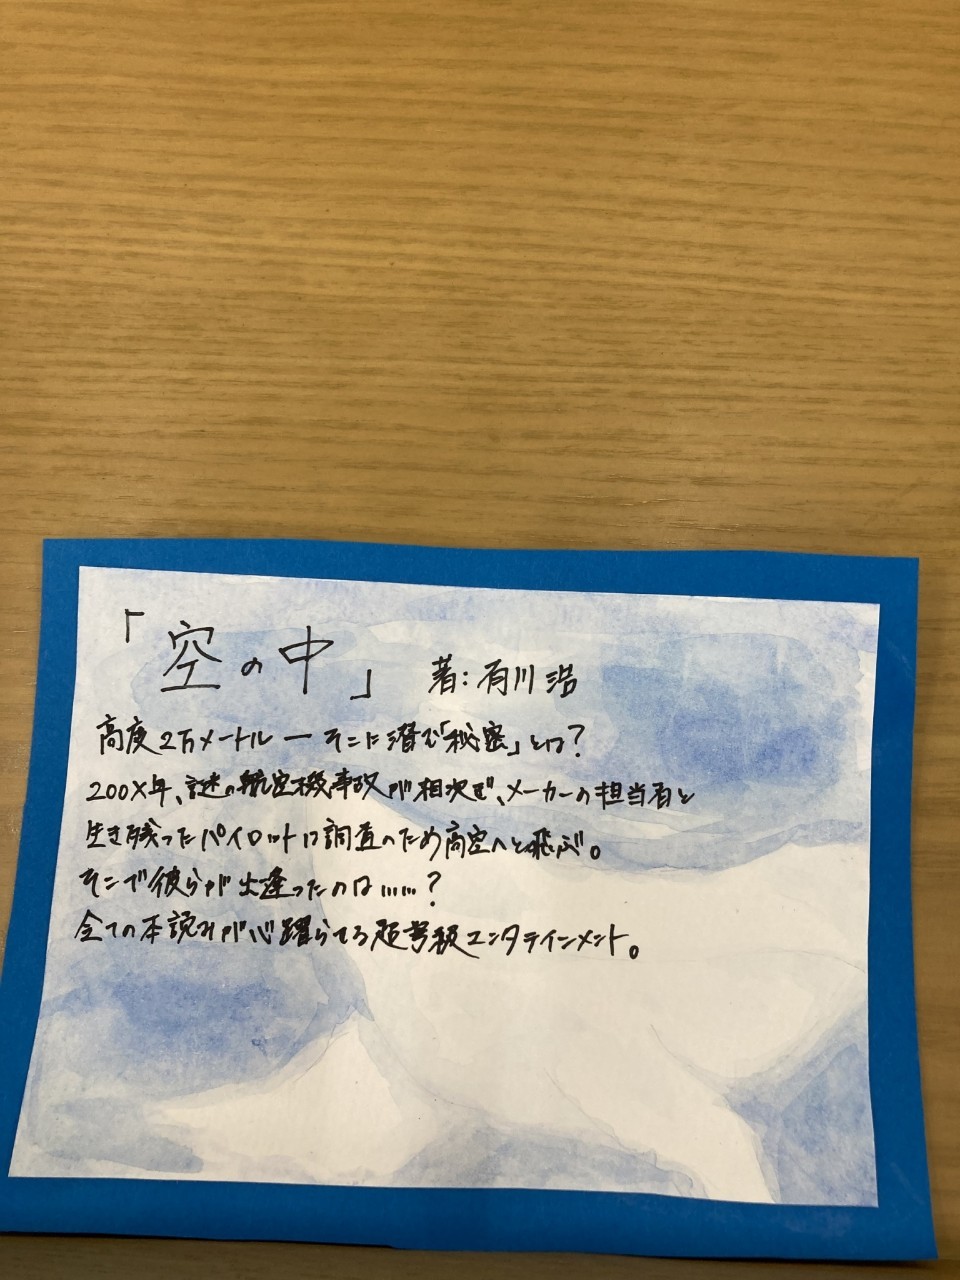 「空の中」 著：有川 浩
高度2万メートル ― そこに潜む「秘密」とは？
200X年、謎の航空機事故が相次ぎ、メーカーの担当者と
生き残ったパイロットは調査のため高空へと飛ぶ。
そこで彼らが出逢ったのは……？
全ての本読みが心躍らせる超弩級エンタテインメント。